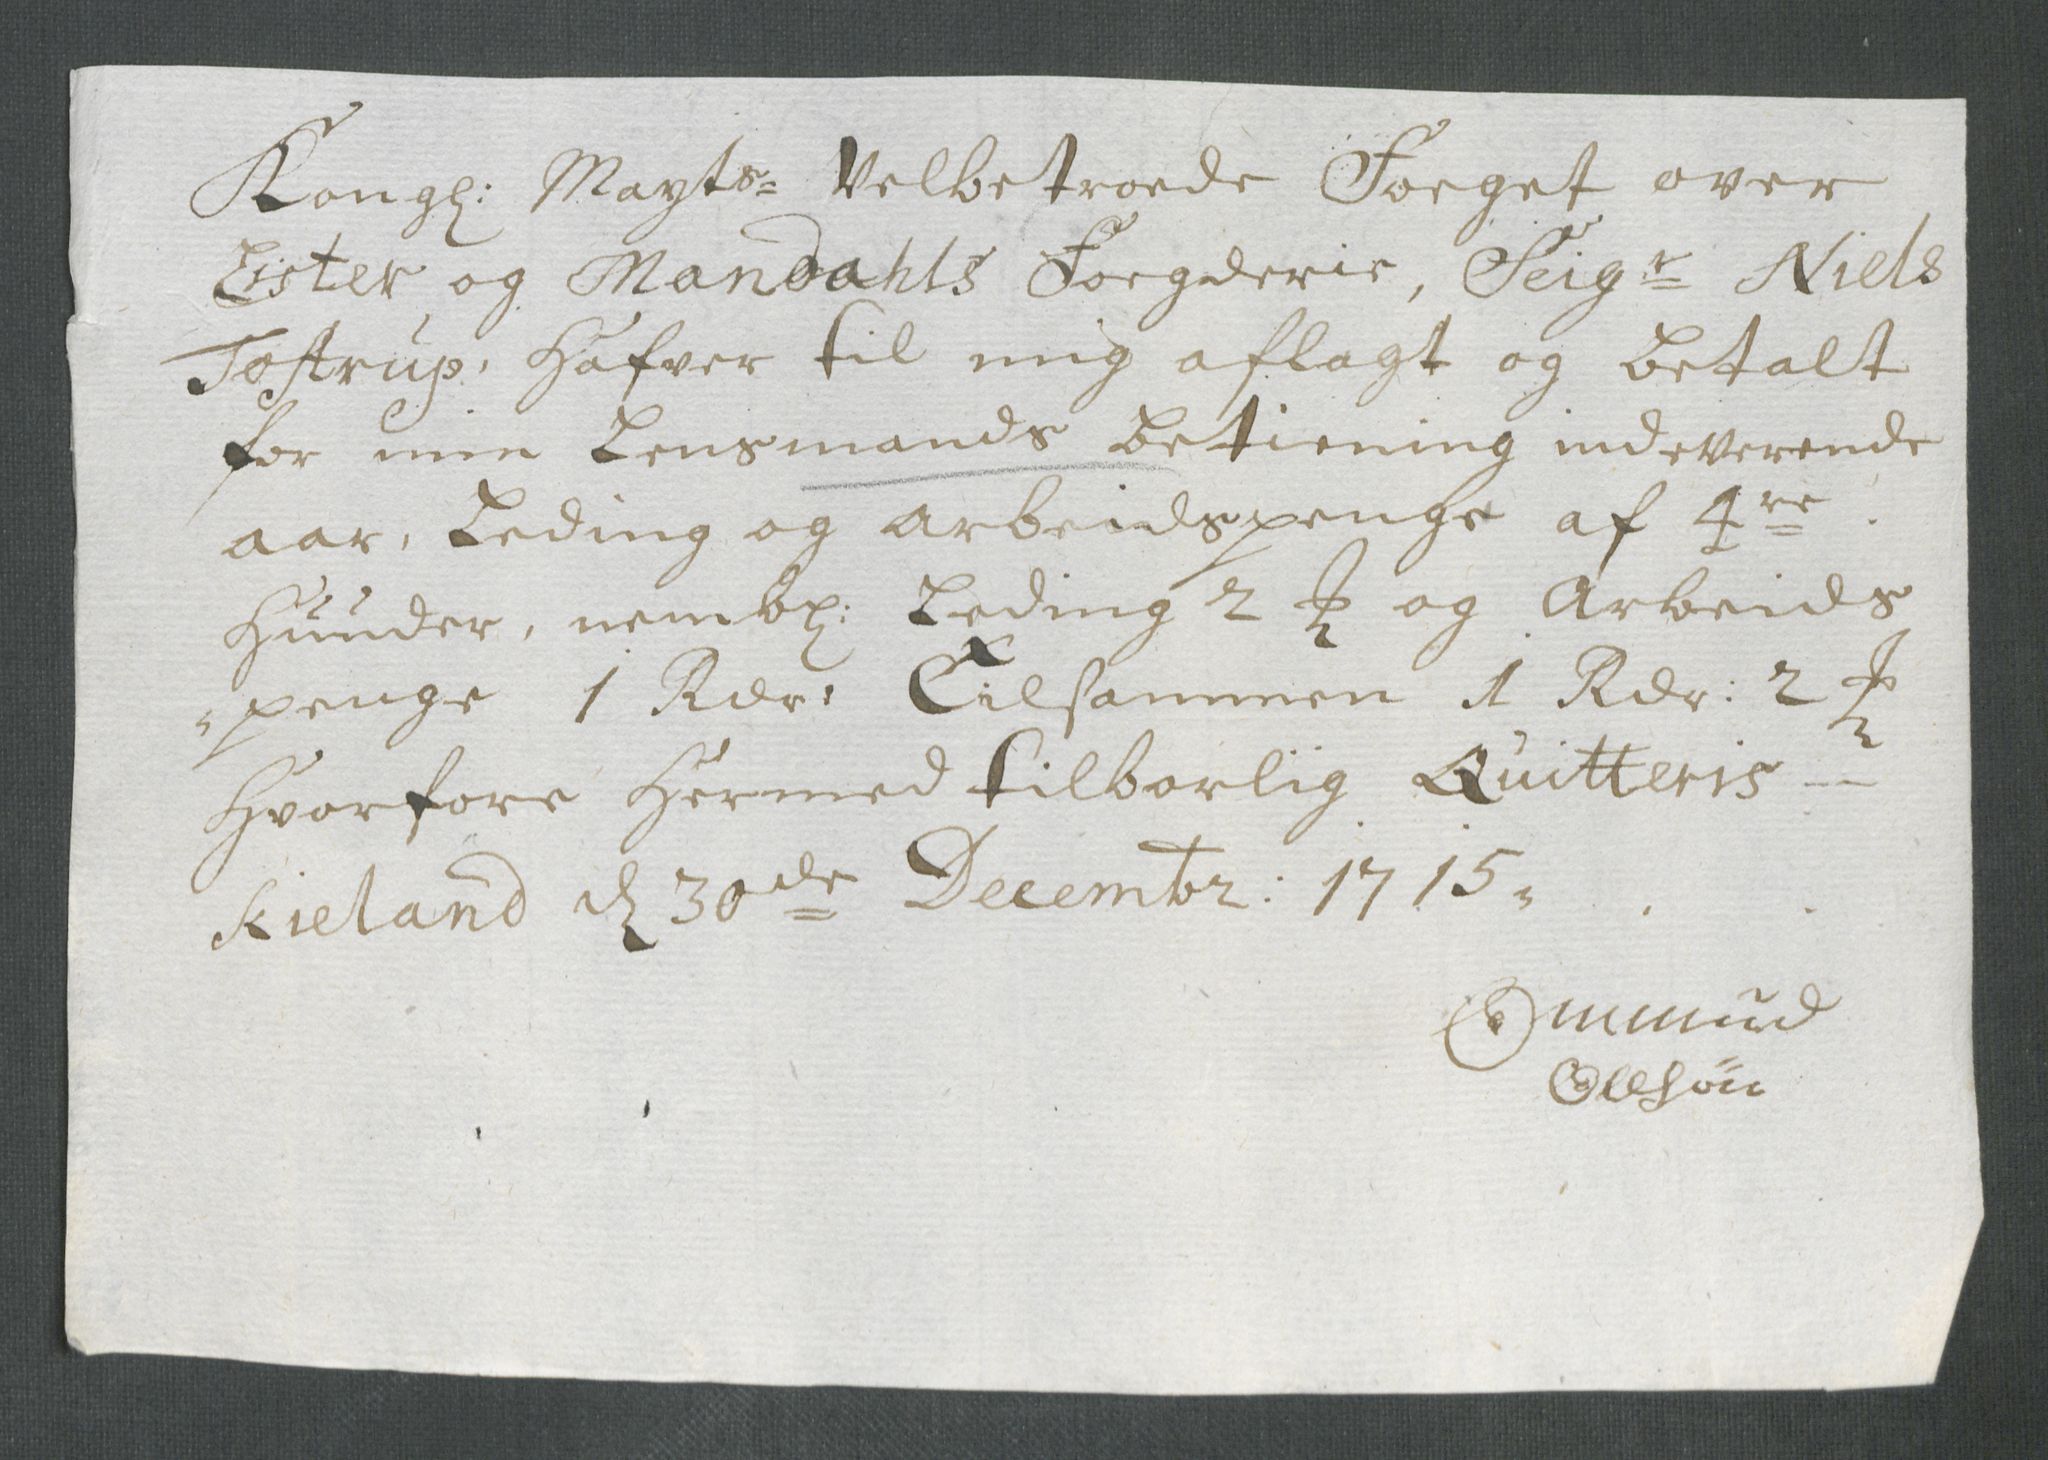 Kongl: Mayts= Velbetroede Foeget over
Lister og Mandahls Foegderie, Seigr Niels
Tostrup, Hafver til mig aflagt og betalt
for min Lensmands betiening indeverende
aar, Leding og arbeidspenge af 4re
Huuder, nembl: Leding 2 ß og Arbeids
=penge 1 Rdr: Tilsammen 1 Rdr: 2 ß
Hvorfore Hermed tilborlig Quitteris —
Kieland d 30de Decembr: 1715=
Ommund
Ollsön